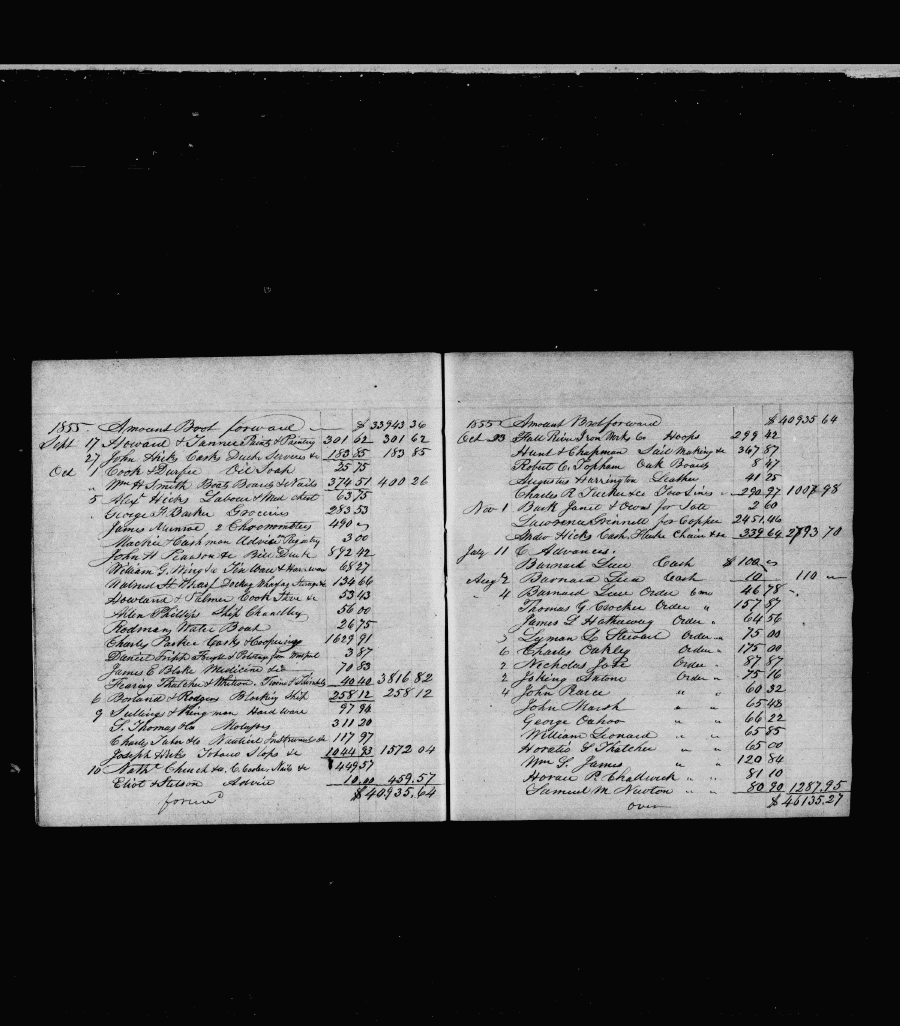 1855. Amount Brot forward — $33943 36
Sept 17 Howard & Tanner Paints & Painting 301 62 301 62
27 John Hicks Casks Duck Services &c 183 85 183 85
Oct 1 Cook & Durfee Oil Soap 25 75
" Wm H Smith Boats Boards & Nails 374 51 400 26
5 Alexr Hicks Labour & Med chest 63 75
" George F. Barker Groceries 283 53
James Munroe 2 Chronometers 490 "
Mackie & Cashman Advice 3 00
John H Pearson &c Bill Duck 892 42
William G. Wing &c Tin Ware & Hardware 68 27
Walnut St Wharf Dockage Wharfage Storage &c 134 66
Howland & Palmer Cook Stove &c 53 43
Allen Phillips Ship Chandlery 56 00
Rodman Water Boat 26 75
Charles Parker Casks & Coopering 1629 91
Daniel Fright & Pilotage from Westport 3 87
James E Blake Medicine &c 70 83
Fearing Thatcher & Whitton. Twine & Thimbles 40 40 3816 82
6 Borland & Rodgers Blocking Ship 258 12 258 12
9 Sullings & Kingman Hard ware 97 90
S. Thomas & Co Molasses 311 20
Charles Taber & Co Nautical Instruments &c 117 97
Joseph Hicks Tobacco Slops &c 1044 93 1572 04
10 Nathl Church &c. C. Casks, Nails &c 449 57
Eliot & Stetson Advice 10.00 459.57
forwd $40935.64
1855 Amount Brot forward $40935 64
Oct 23 Fall River Iron Works Co Hoops 299 42
Hunt & Chapman Sail Making &c 367 87
Robert C. Topham Oak Boards 8 47
Augustus Harrington Leather 41 25
Charles R. Tucker &c Tow Lines " 290.97 1007 98
Nov 1 Bark Janet & Owns for Salt 2 60
Lawrence Grinnell for Copper 2451.46
Andw Hicks Cash, Fluke Chain &c 339 64 2793 70
July 11 C Advances.
Barnard Luce Cash $100 "
Aug 2 Barnard Luce Cash 10 110 "
" 4 Barnard Luce Order 46 78
Thomas G. Crocker Order " 157 87
James L Hathaway Order " 64 56
5 Lyman L Stewart Order " 75 00
6 Charles Oakley Order " 175 00
2 Nicholas Order " 87 87
2 Antone Order " 75 16
4 John Pearce " " 60 32
John Marsh " " 65 48
George Cahoo " " 66 22
William Leonard " " 65 85
Horatio G Thatcher " " 65 00
Wm S. James " " 120 84
Horace P. Chadwick " " 81 10
Samuel M. Newton " " 80 90 1287.95
over $46135.27